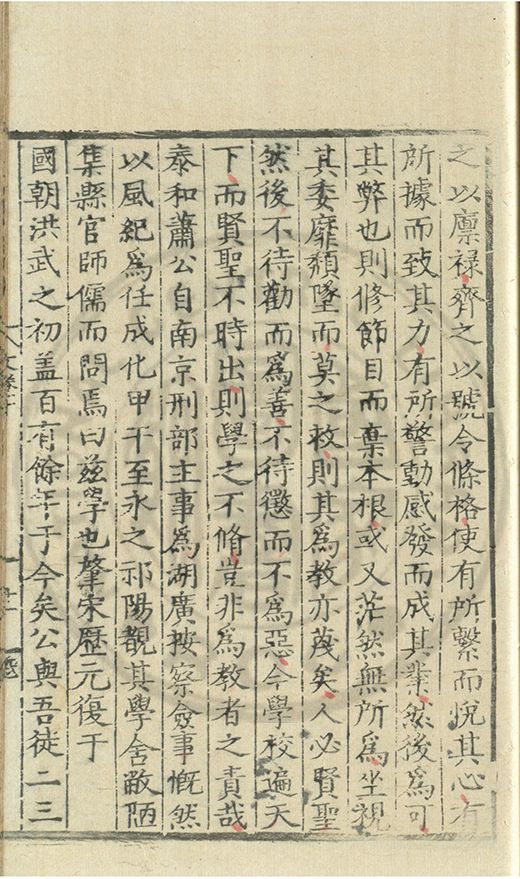 之以廩禄齊之以號令條格使有所繫而恱其心有
所據而致其力有所警動感發而成其業然後爲可
其弊也則修飾目而棄本根或又茫然無所爲坐視
其委靡頽墜而莫之救則其爲教亦蔑矣人必賢聖
然後不待勸而爲善不待懲而不爲惡今學校遍天
下而賢聖不時出則學之不脩豈非爲教者之責哉
泰和蕭公自南京刑部主事爲湖廣按察僉事慨然
以風紀爲任成化甲午至永之祁陽覩其學舍敝陋
集縣官師儒而問焉曰兹學也肇宋歷元復于
國朝洪武之初盖百有餘年于今矣公與吾徒二三